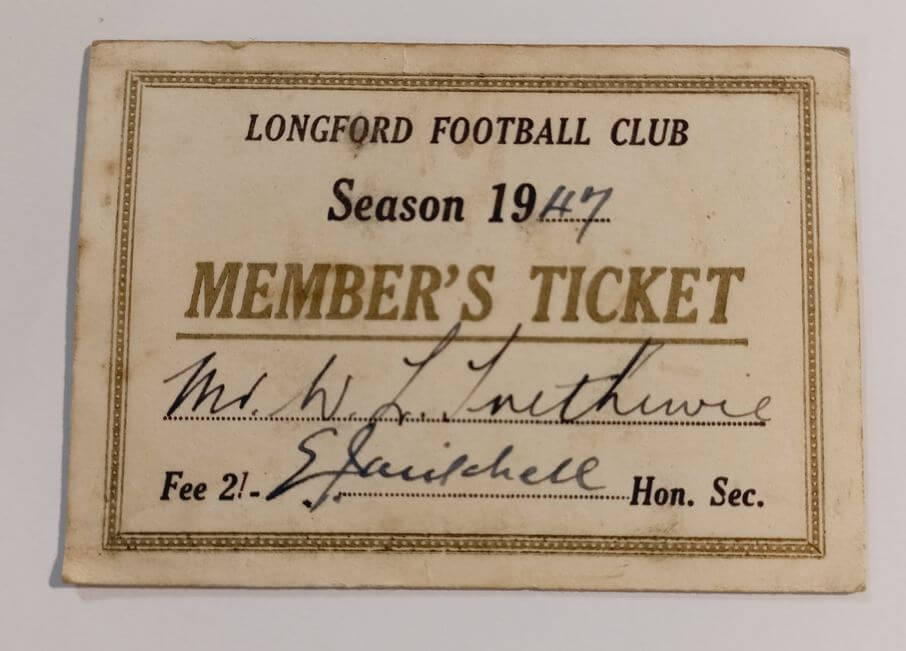 LONGFORD FOOTBALL CLUB
Season 1947
MEMBER'S TICKET
Mr. W. L.
Fee 2/- Hon. Sec.